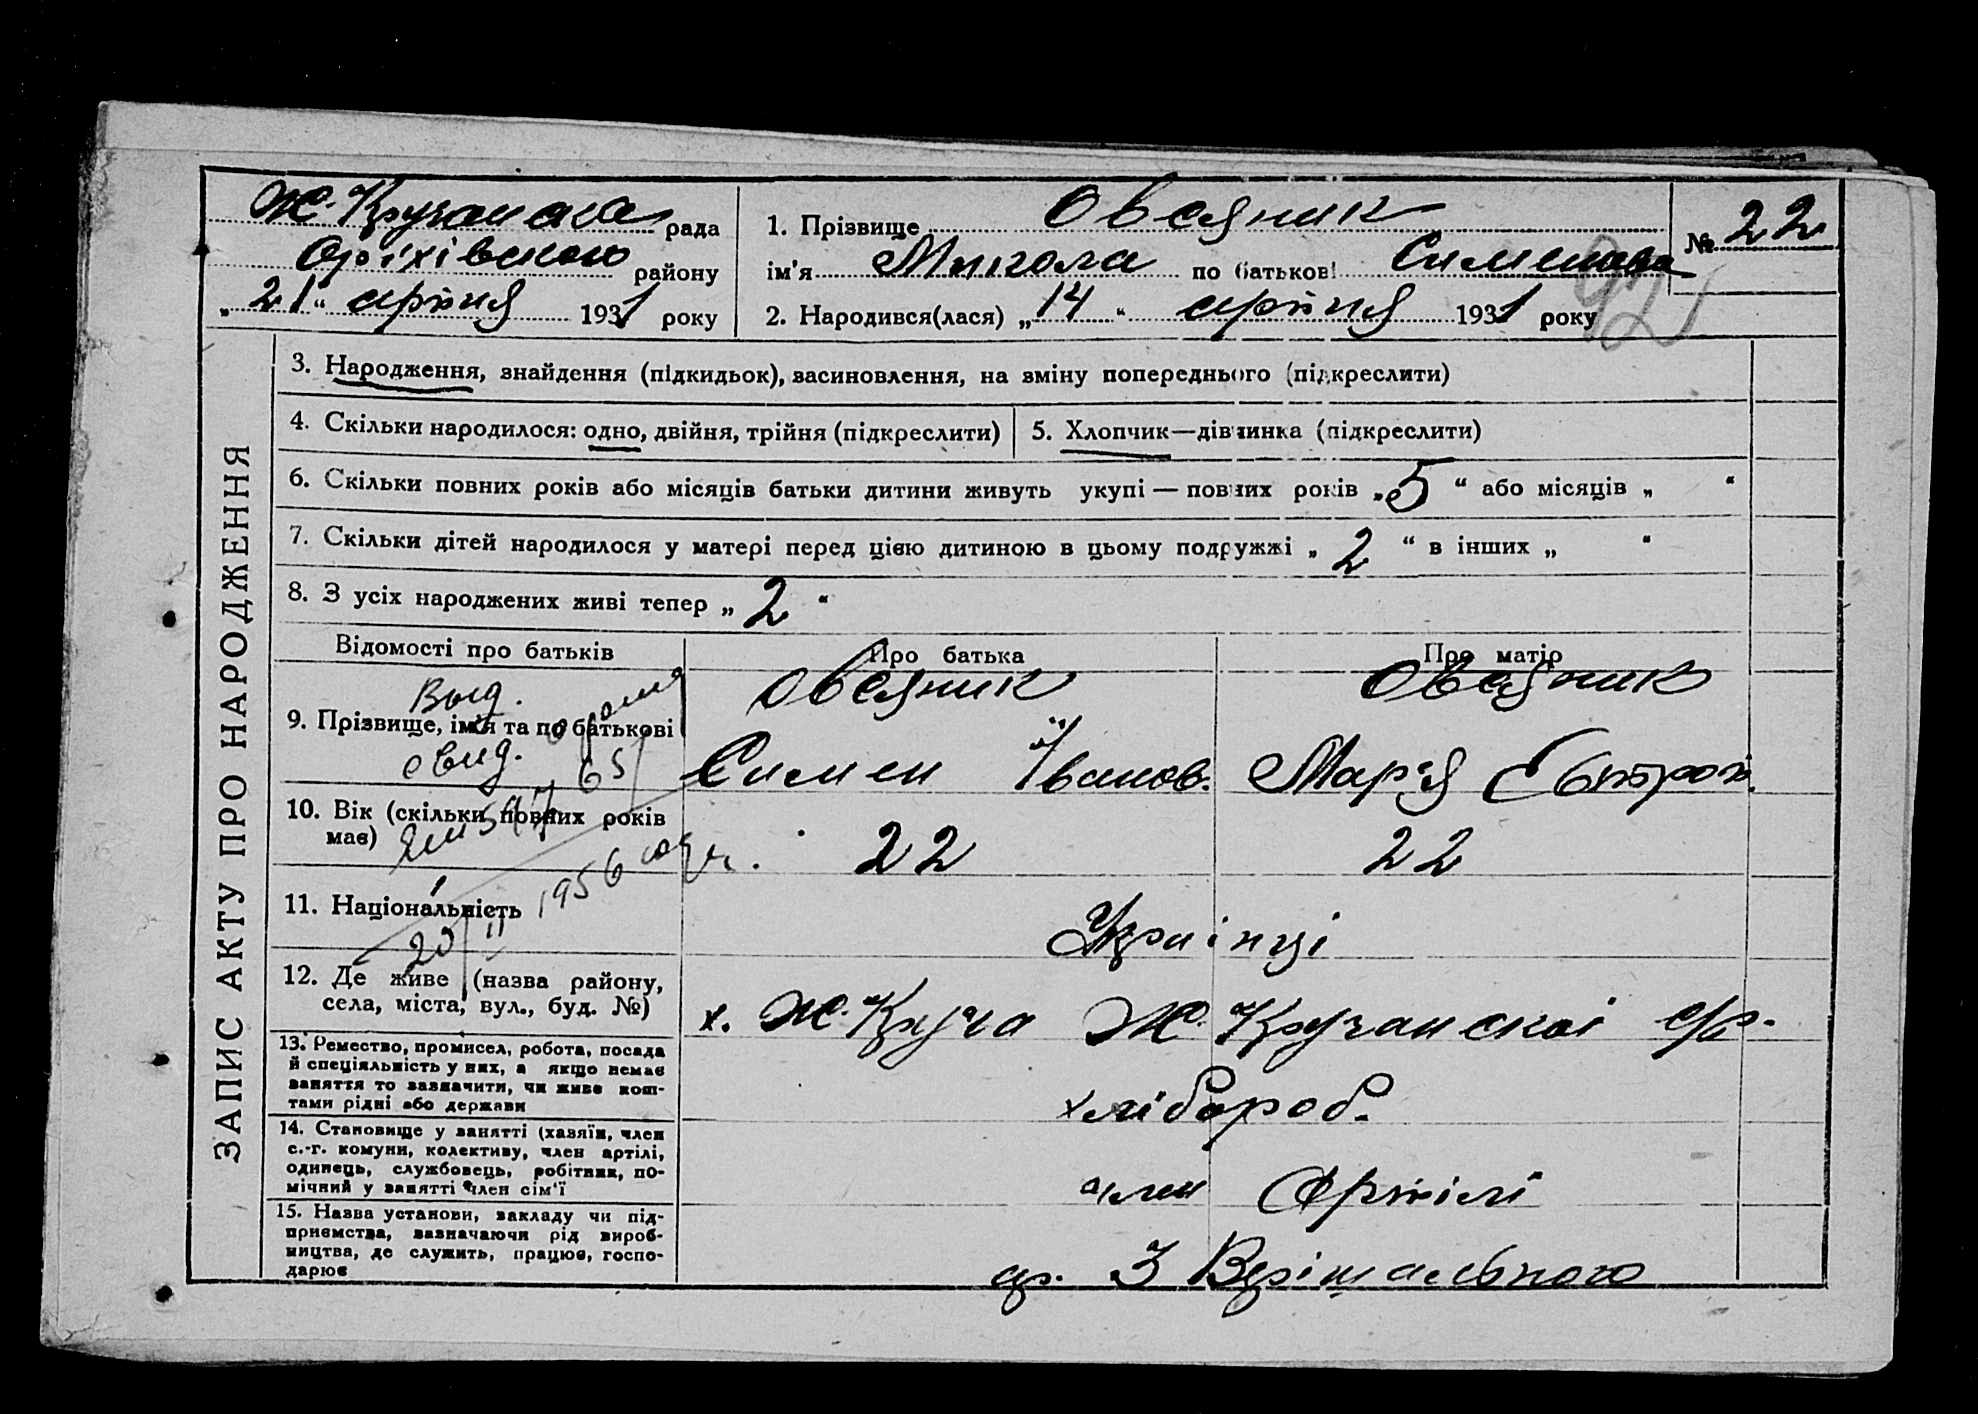 Ж. Кручанска рада
Оріхівського району
„21“ серпня 1931 року
1. Прізвище Овсяник
ім'я Микола по батькові Сименова
2. Народився(лася) „14“ серпня 1931 року
№ 22
92
ЗАПИС АКТУ ПРО НАРОДЖЕННЯ
3. Народження, знайдення (підкидьок), засиновлення, на зміну попереднього (підкреслити)
4. Скільки народилося: одно, двійня, трійня (підкреслити)
5. Хлопчик—дівчинка (підкреслити)
6. Скільки повних років або місяців батьки дитини живуть укупі — повних років „5“ або місяців „ “
7. Скільки дітей народилося у матері перед цією дитиною в цьому подружжі „2“ в інших „ “
8. З усіх народжених живі тепер „2“
Відомості про батьків
Про батька
Про матір
9. Прізвище, ім'я та по батькові
Овсяник
Симен Іванов.
Овсяник
Мар'я
Выд.
свид.
20/II 1956
10. Вік (скільки повних років
має)
22
22
11. Національність
Українці
12. Де живе (назва району,
села, міста, вул., буд. №)
х. Ж. Круча Ж. Кручанскоі с/р.
13. Ремество, промисел, робота, посада
й спеціяльність у них, а якщо немає
заняття то зазначити, чи живе кош-
тами рідні або держави
хлібороб.
14. Становище у занятті (хазяїн, член
с.-г. комуни, колективу, член артілі,
одинець, службовець, робітник, по-
мічний у занятті член сім'ї
член Артілі
15. Назва установи, закладу чи під-
приємства, зазначаючи рід вироб-
ництва, де служить, працює, госпо-
дарює
ар. З Вирішального